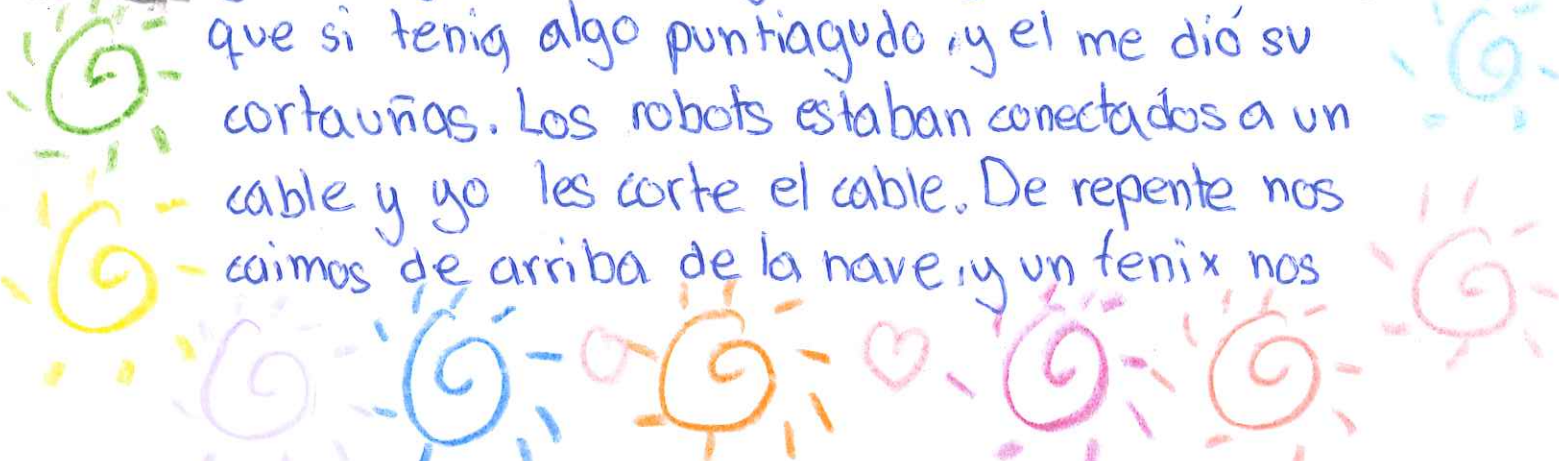 que si tenia algo puntiagudo, y el me dió su
cortauñas. Los robots estaban conectados a un
cable y yo les corte el cable. De repente nos
caimos de arriba de la nave, y un fenix nos